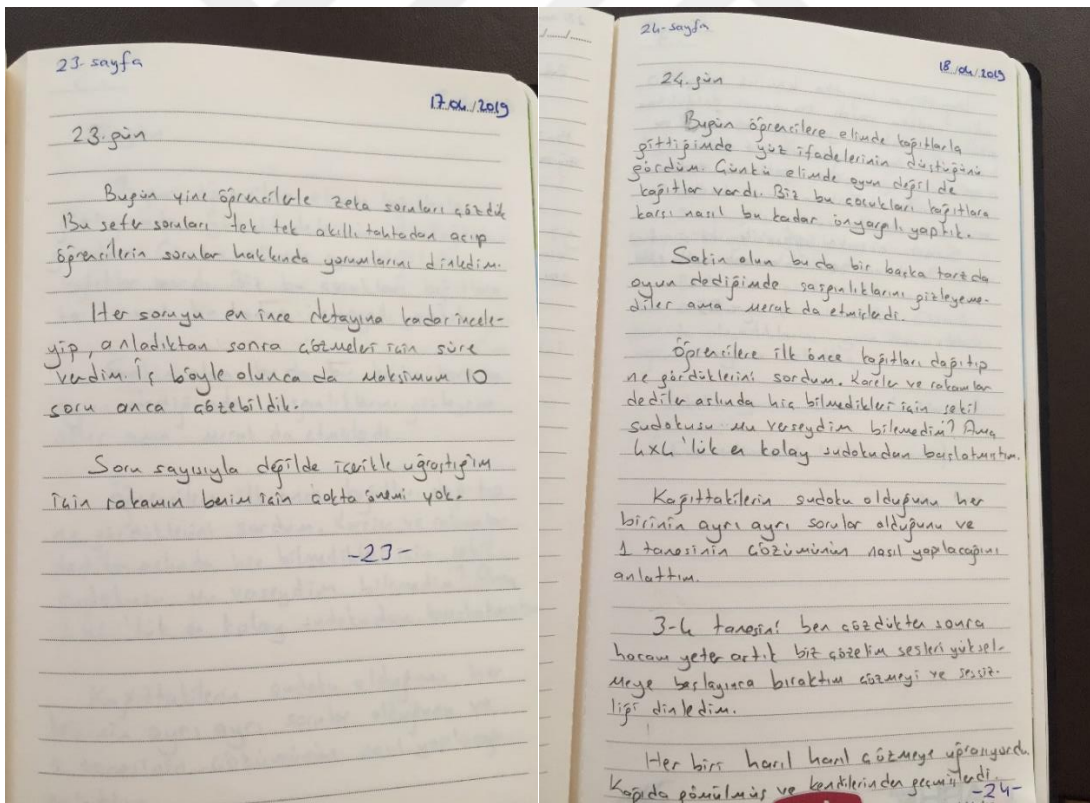 23-sayfa
17/04/2019
23.gün
Bugün yine öğrencilerle zeka soruları çözdük
Bu sefer soruları tek tek akıllı tahtadan açıp
öğrencilerin sorular hakkında yorumlarını dinledim.
Her soruyu en ince detayına kadar incele-
yip, anladıktan sonra çözmeleri için süre
verdim. İş böyle olunca da maksimum 10
soru anca çözebildik.
Soru sayısıyla değilde içerikle uğraştığım
için rakamın benim için çokta önemi yok.
-23-
24-sayfa
18/04/2019
24.gün
Bugün öğrencilere elimde kağıtlarla
gittiğimde yüz ifadelerinin düştüğünü
gördüm. Çünkü elimde oyun değil de
kağıtlar vardı. Biz bu çocukları kağıtlara
karşı nasıl bu kadar önyargılı yaptık.
Sakin olun bu da bir başka tarzda
oyun dediğimde şaşgınlıklarını gizleyeme-
diler ama merak da etmişlerdi.
Öğrencilere ilk önce kağıtları dağıtıp
ne gördüklerini sordum. Kareler ve rakamlar
dediler aslında hiç bilmedikleri için şekil
sudokusu mu verseydim bilemedim? Ama
4x4'lük en kolay sudokudan başlatmıştım.
Kağıttakilerin sudoku olduğunu her
birinin ayrı ayrı sorular olduğunu ve
1 tanesinin çözümünün nasıl yapılacağını
anlattım.
3-4 tanesini ben çözdükten sonra
hocam yeter artık biz çözelim sesleri yüksel-
meye başlayınca bıraktım çözmeyi ve sessiz-
liği dinledim.
Her biri harıl harıl çözmeye uğraşıyordu.
Kağıda gömülmüş ve kendilerinden geçmişlerdi.
-24-